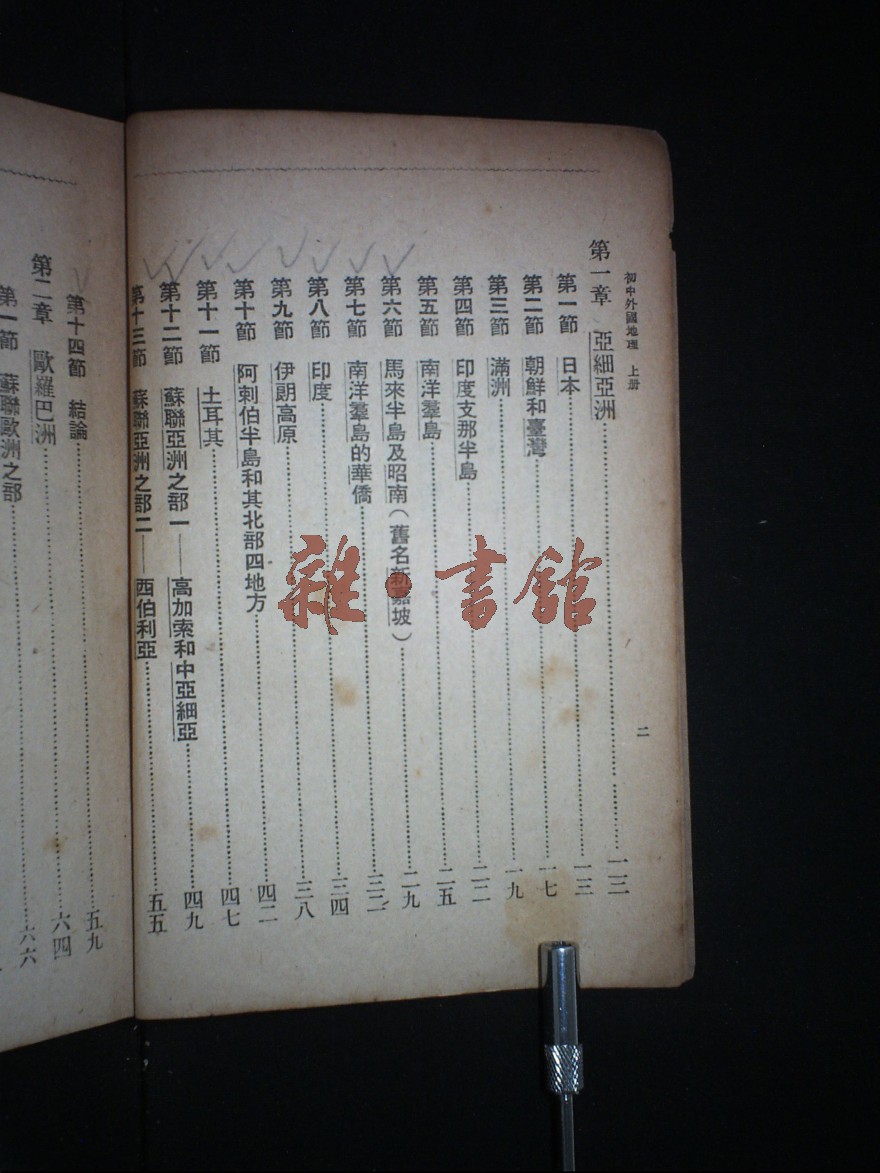 初中外國地理 上册
二
第一章 亞細亞洲……一三
第一節 日本……一三
第二節 朝鮮和臺灣……一七
第三節 滿洲……一九
第四節 印度支那半島……二二
第五節 南洋羣島……二五
第六節 馬來半島及昭南(舊名新嘉坡)……二九
第七節 南洋羣島的華僑……三二
第八節 印度……三四
第九節 伊朗高原……三八
第十節 阿剌伯半島和其北部四地方……四二
第十一節 土耳其……四七
第十二節 蘇聯亞洲之部一——高加索和中亞細亞……四九
第十三節 蘇聯亞洲之部二——西伯利亞……五五
第十四節 結論……五九
第二章 歐羅巴洲……六四
第一節 蘇聯歐洲之部……六六
雜·書館